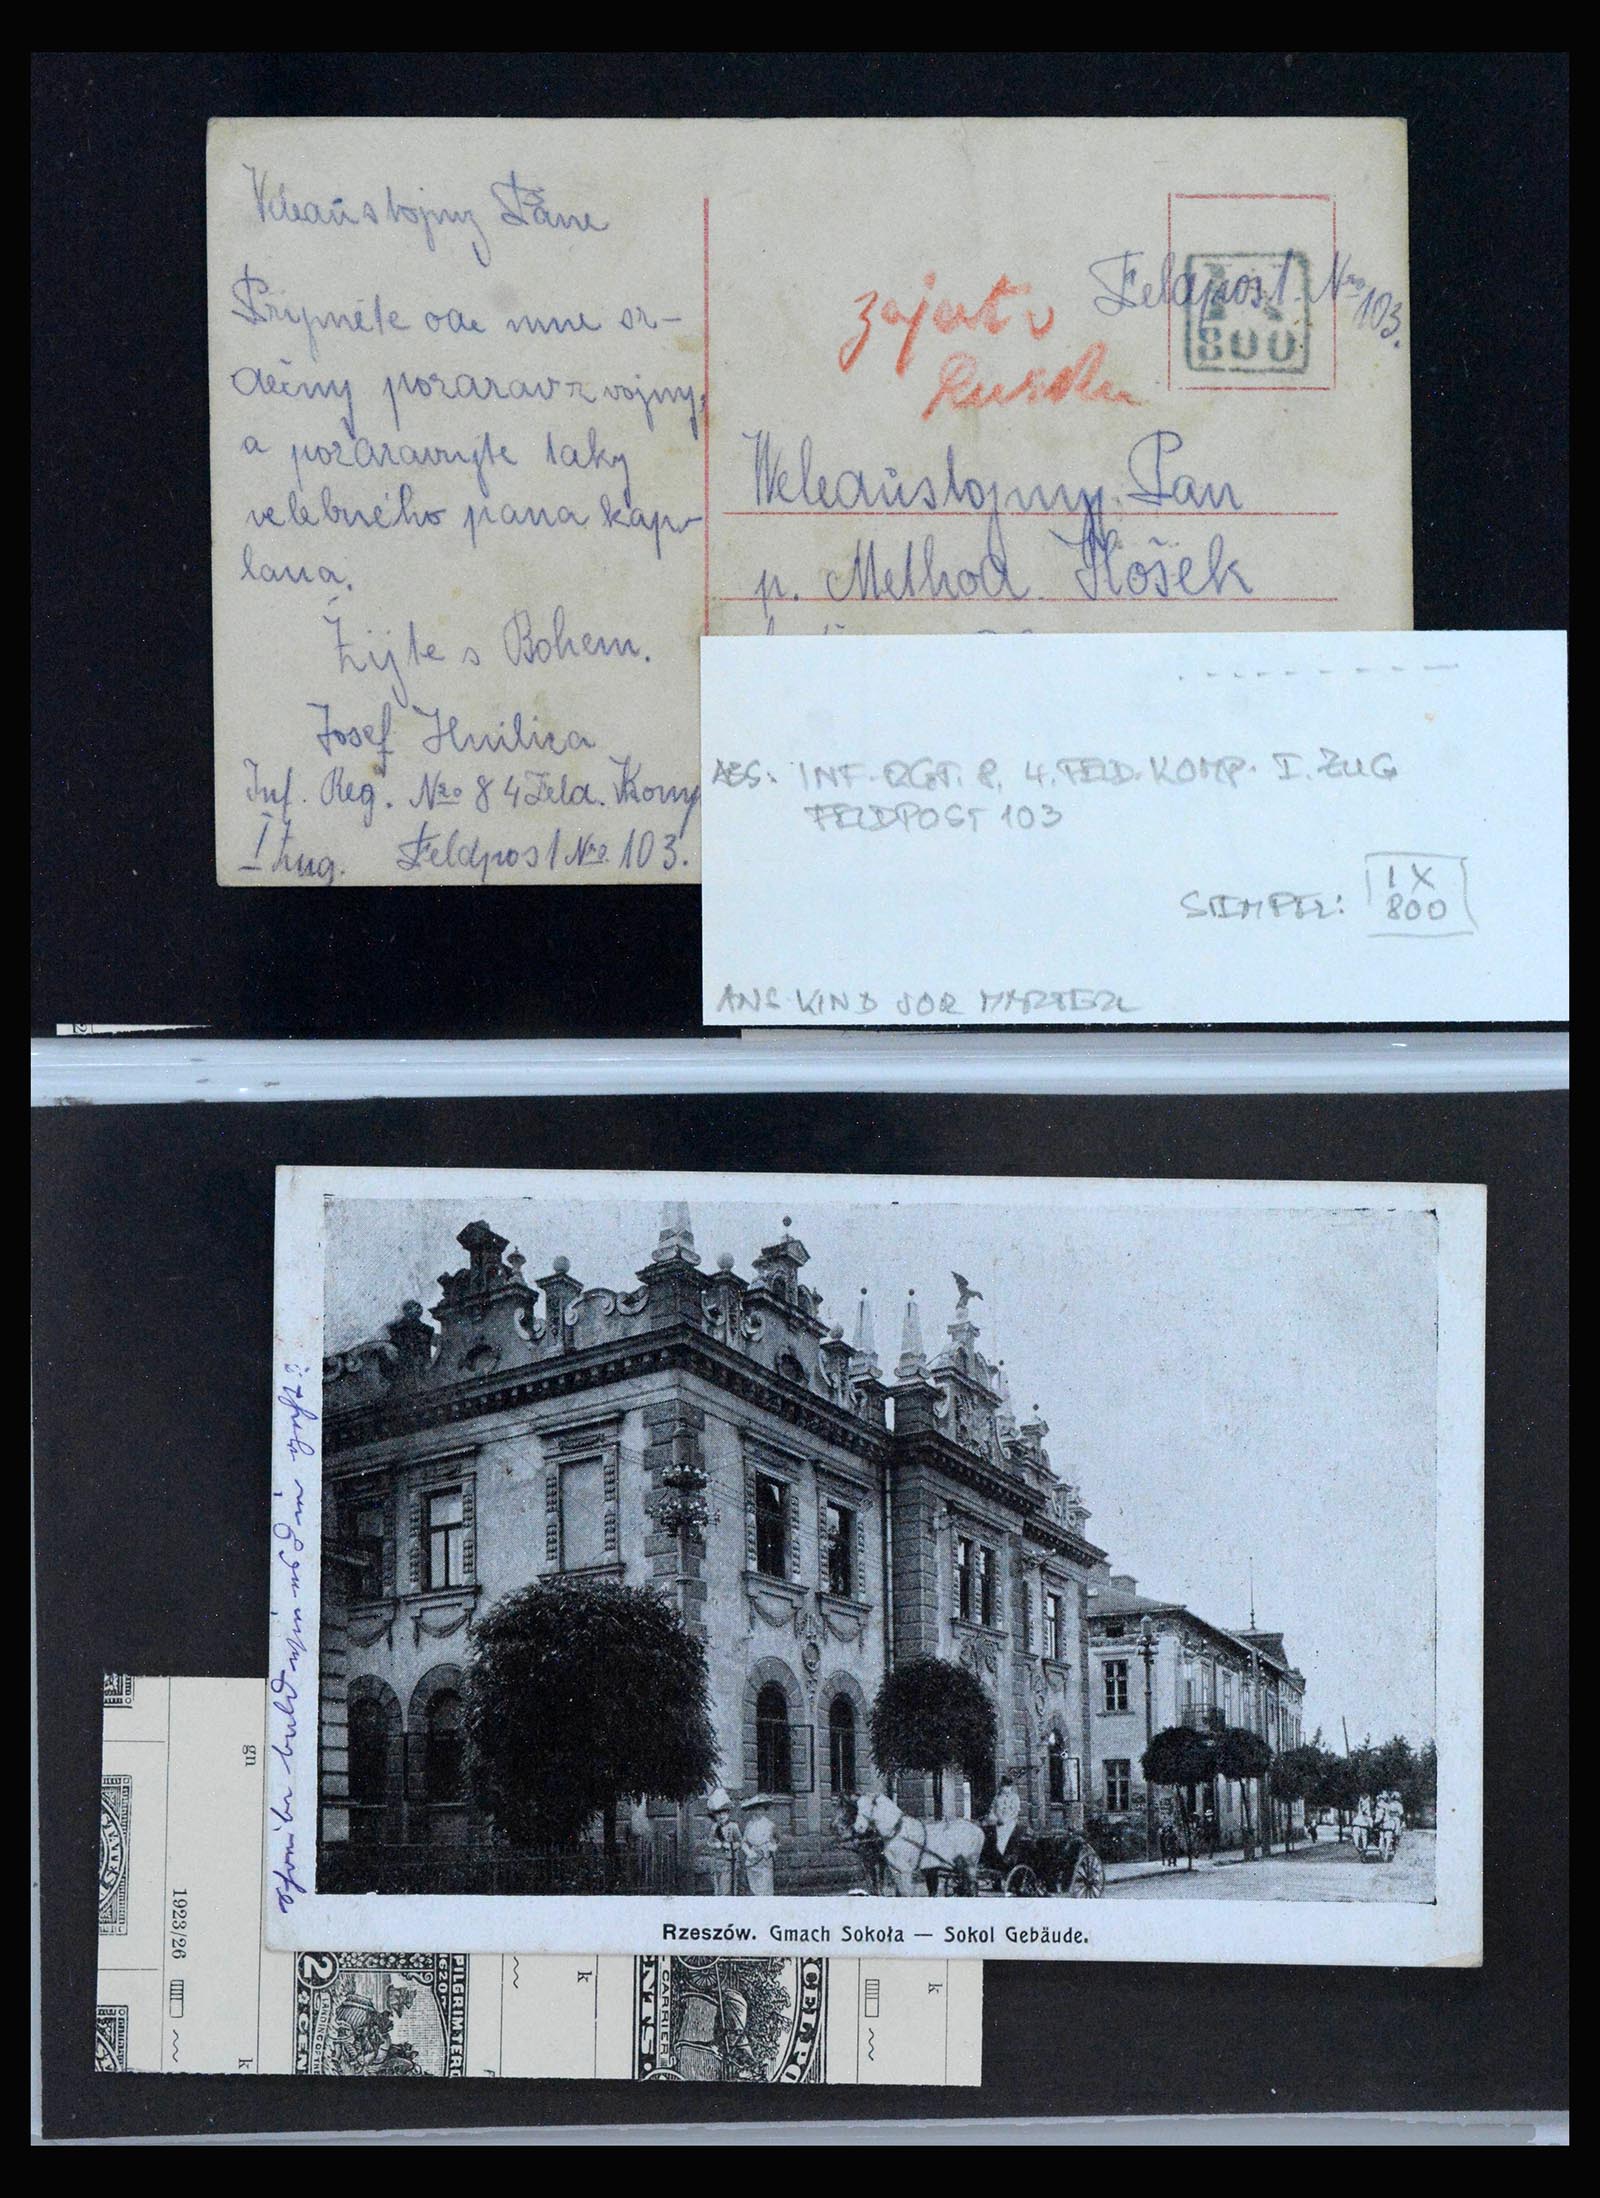 Veleaůstojny Pane
Přijměte ode mne sr-
dečny pozdrav z vojny,
a pozdravujte taky
velebného pana kap-
lana.
Žijte s Bohem.
Josef Hnilica
Inf. Reg. Nro 8 4 Feld. Komp
I Zug. Feldpost Nro. 103.
Feldpost Nro 103.
zajat v
Rusku
IX
800
Veledůstojny Pan
p. Method Hošek
ABS: INF. RGT. 8, 4. FELD. KOMP. I. ZUG
FELDPOST 103
STEMPEL: IX
800
ANS. KIND VOR MARTERL
Rzeszów. Gmach Sokoła — Sokol Gebäude.
gn
1923/26
k
k
k
PILGRIM TERC
1620
LANDING OF THE
2 CEN
CARRIER
ENTS.